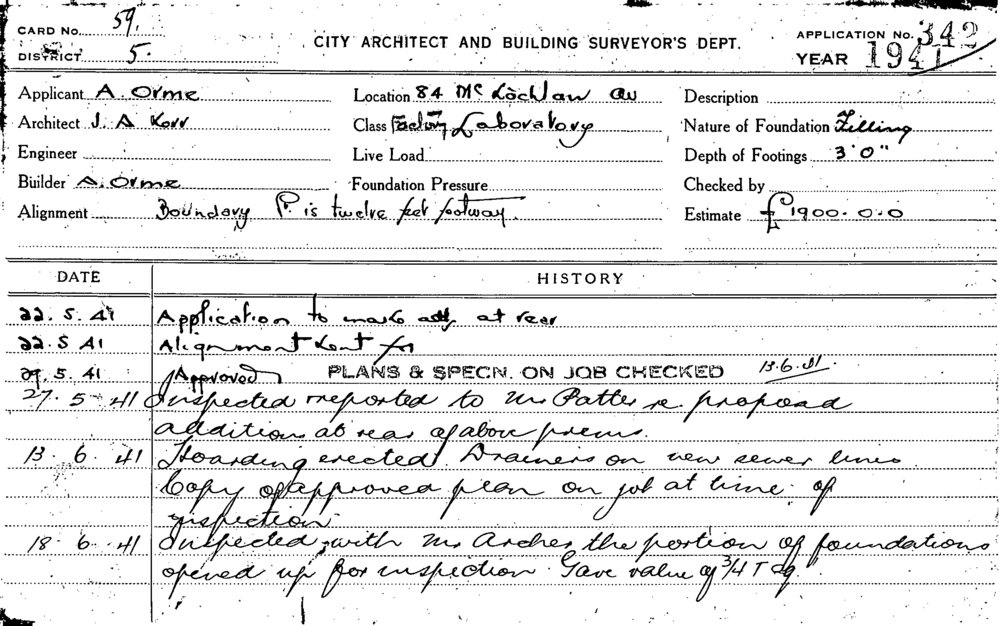 CARD No. 59.
DISTRICT 5.
CITY ARCHITECT AND BUILDING SURVEYOR'S DEPT.
APPLICATION No. 342
YEAR 1941
Applicant A. Orme
Location 84 Mc Lachlan Av
Description
Architect J. A Kerr
Class Factory Laboratory
Nature of Foundation Filling
Engineer
Live Load
Depth of Footings 3'0"
Builder A. Orme
Foundation Pressure
Checked by
Alignment Boundary P. is twelve feet footway.
Estimate £1900.0.0
DATE
HISTORY
22.5.41 Application to make at rear
22.5.41 Alignment sent for
29.5.41 Approved PLANS & SPECN. ON JOB CHECKED 13.6.41
27.5.41 Inspected reported to Mr Patter re proposed
additions at rear of above prems.
13.6.41 Hoarding erected. Drainers on new sewer lines
Copy of approved plan on job at time of
inspection
18.6.41 Inspected with Mr Archer the portion of foundations
opened up for inspection. Gave value of 3/4 T